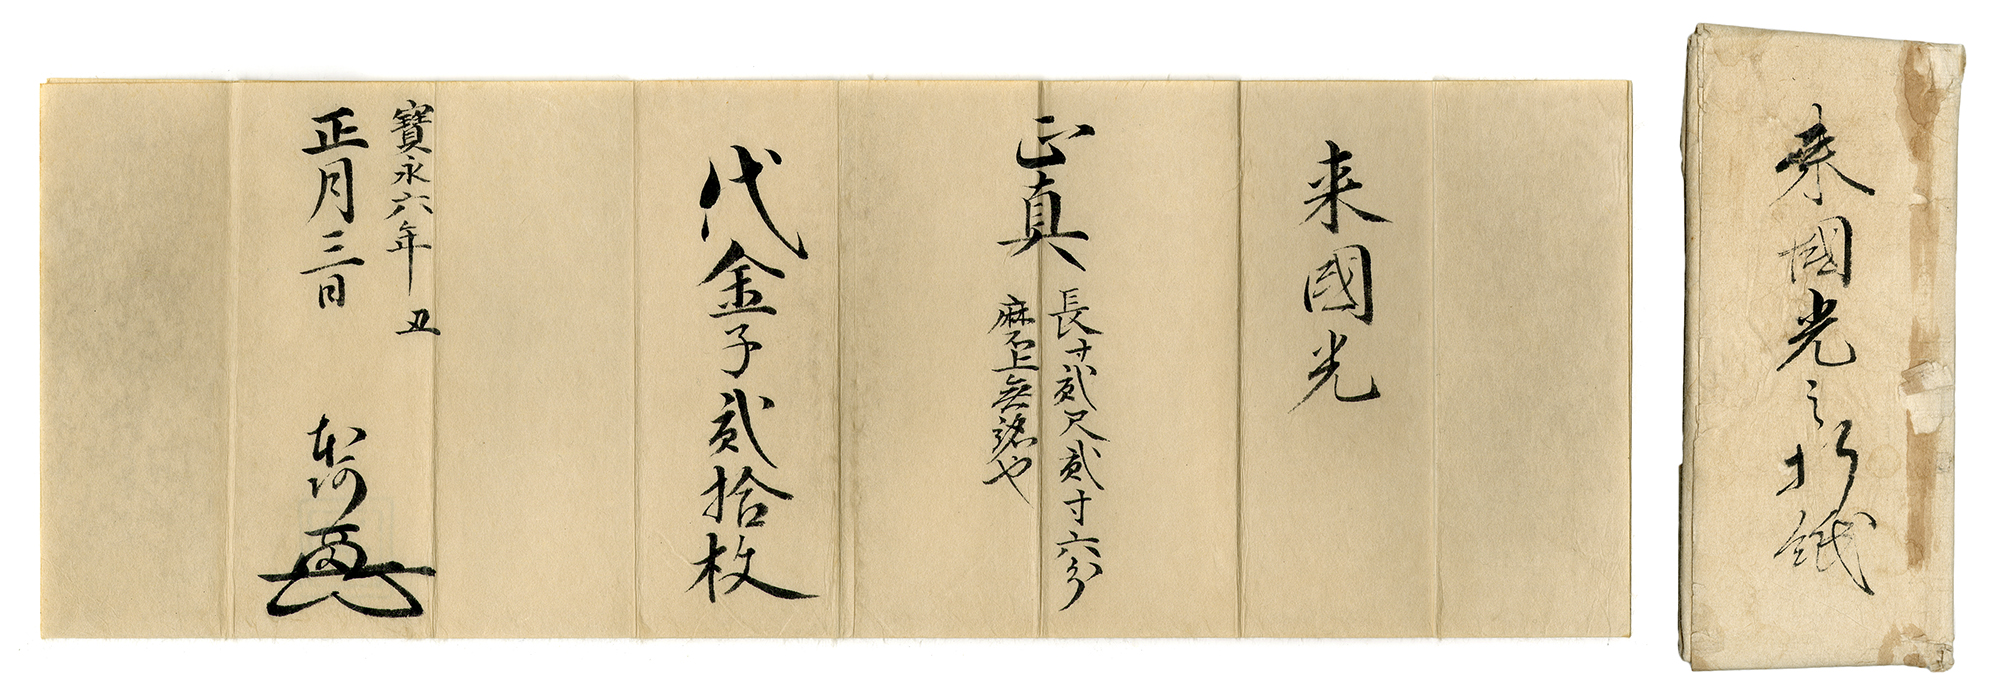 来國光之折紙
来國光
正真
長サ貳尺貳寸六分
磨上無銘や
代金子貳拾枚
寳永六年 丑
正月三日
本阿